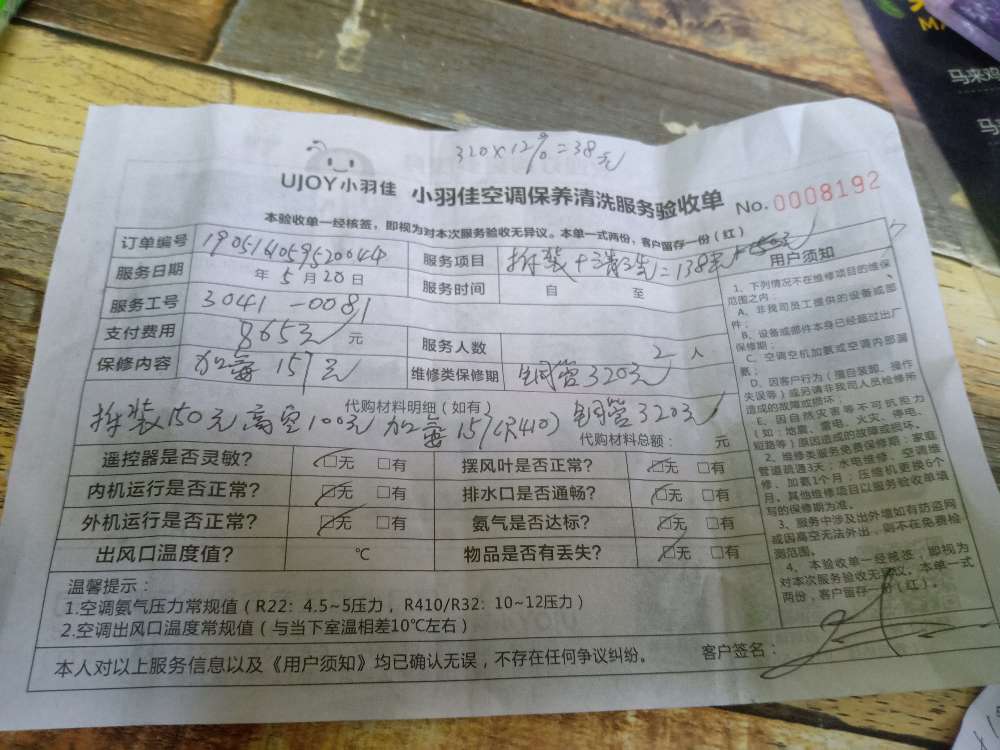 MA
马来鸡
马
320×12%=38元
UJOY小羽佳 小羽佳空调保养清洗服务验收单 No.0008192
本验收单一经核签，即视为对本次服务验收无异议。本单一式两份，客户留存一份（红）
订单编号 服务项目 拆装+清洗=138元
服务日期 年5月20日 服务时间 自 至
服务工号 3041-0081
支付费用 865元 元 服务人数 2人
保修内容 加氟157元 维修类保修期 铜管320元
代购材料明细（如有）
拆装150元高空100元加氟157(R410)铜管320元
代购材料总额： 元
遥控器是否灵敏？ □无 □有 摆风叶是否正常？ □无 □有
内机运行是否正常？ □无 □有 排水口是否通畅？ □无 □有
外机运行是否正常？ □无 □有 氨气是否达标？ □无 □有
出风口温度值？ ℃ 物品是否有丢失？ □无 □有
温馨提示：
1.空调氨气压力常规值（R22：4.5~5压力，R410/R32：10~12压力）
2.空调出风口温度常规值（与当下室温相差10℃左右）
本人对以上服务信息以及《用户须知》均已确认无误，不存在任何争议纠纷。 客户签名：
用户须知
1、下列情况不在维修项目的维保
范围之内：
A、非我司员工提供的设备或部
件；
B、设备或部件本身已经超过出厂
保修期；
C、空调空机加氨或空调内部漏
氨；
D、因客户行为（擅自装卸、操作
失误等）或另请非我司人员检修所
造成的故障或损坏；
E、因自然灾害等不可抗拒力
（如：地震、雷电、火灾、停电、
短路等）原因造成的故障或损坏。
2、维修类服务免费保修期：家庭
管道疏通3天；水电维修、空调维
修、加氨1个月；压缩机更换6个
月。其他维修项目以服务验收单填
写的保修期为准。
3、服务中涉及出外墙如有防盗网
或因高空无法外出，则不在免费检
测范围。
4、本验收单一经核签，即视为
对本次服务验收无异议。本单一式
两份，客户留存一份（红）。